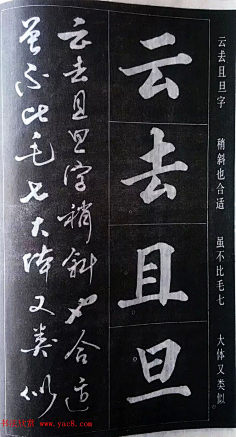 云去且旦字　稍斜也合适　虽不比毛七　大体又类似
云
去
且
旦
云去且旦字稍斜也合适
虽不比毛七大体又类似
www.yac8.com